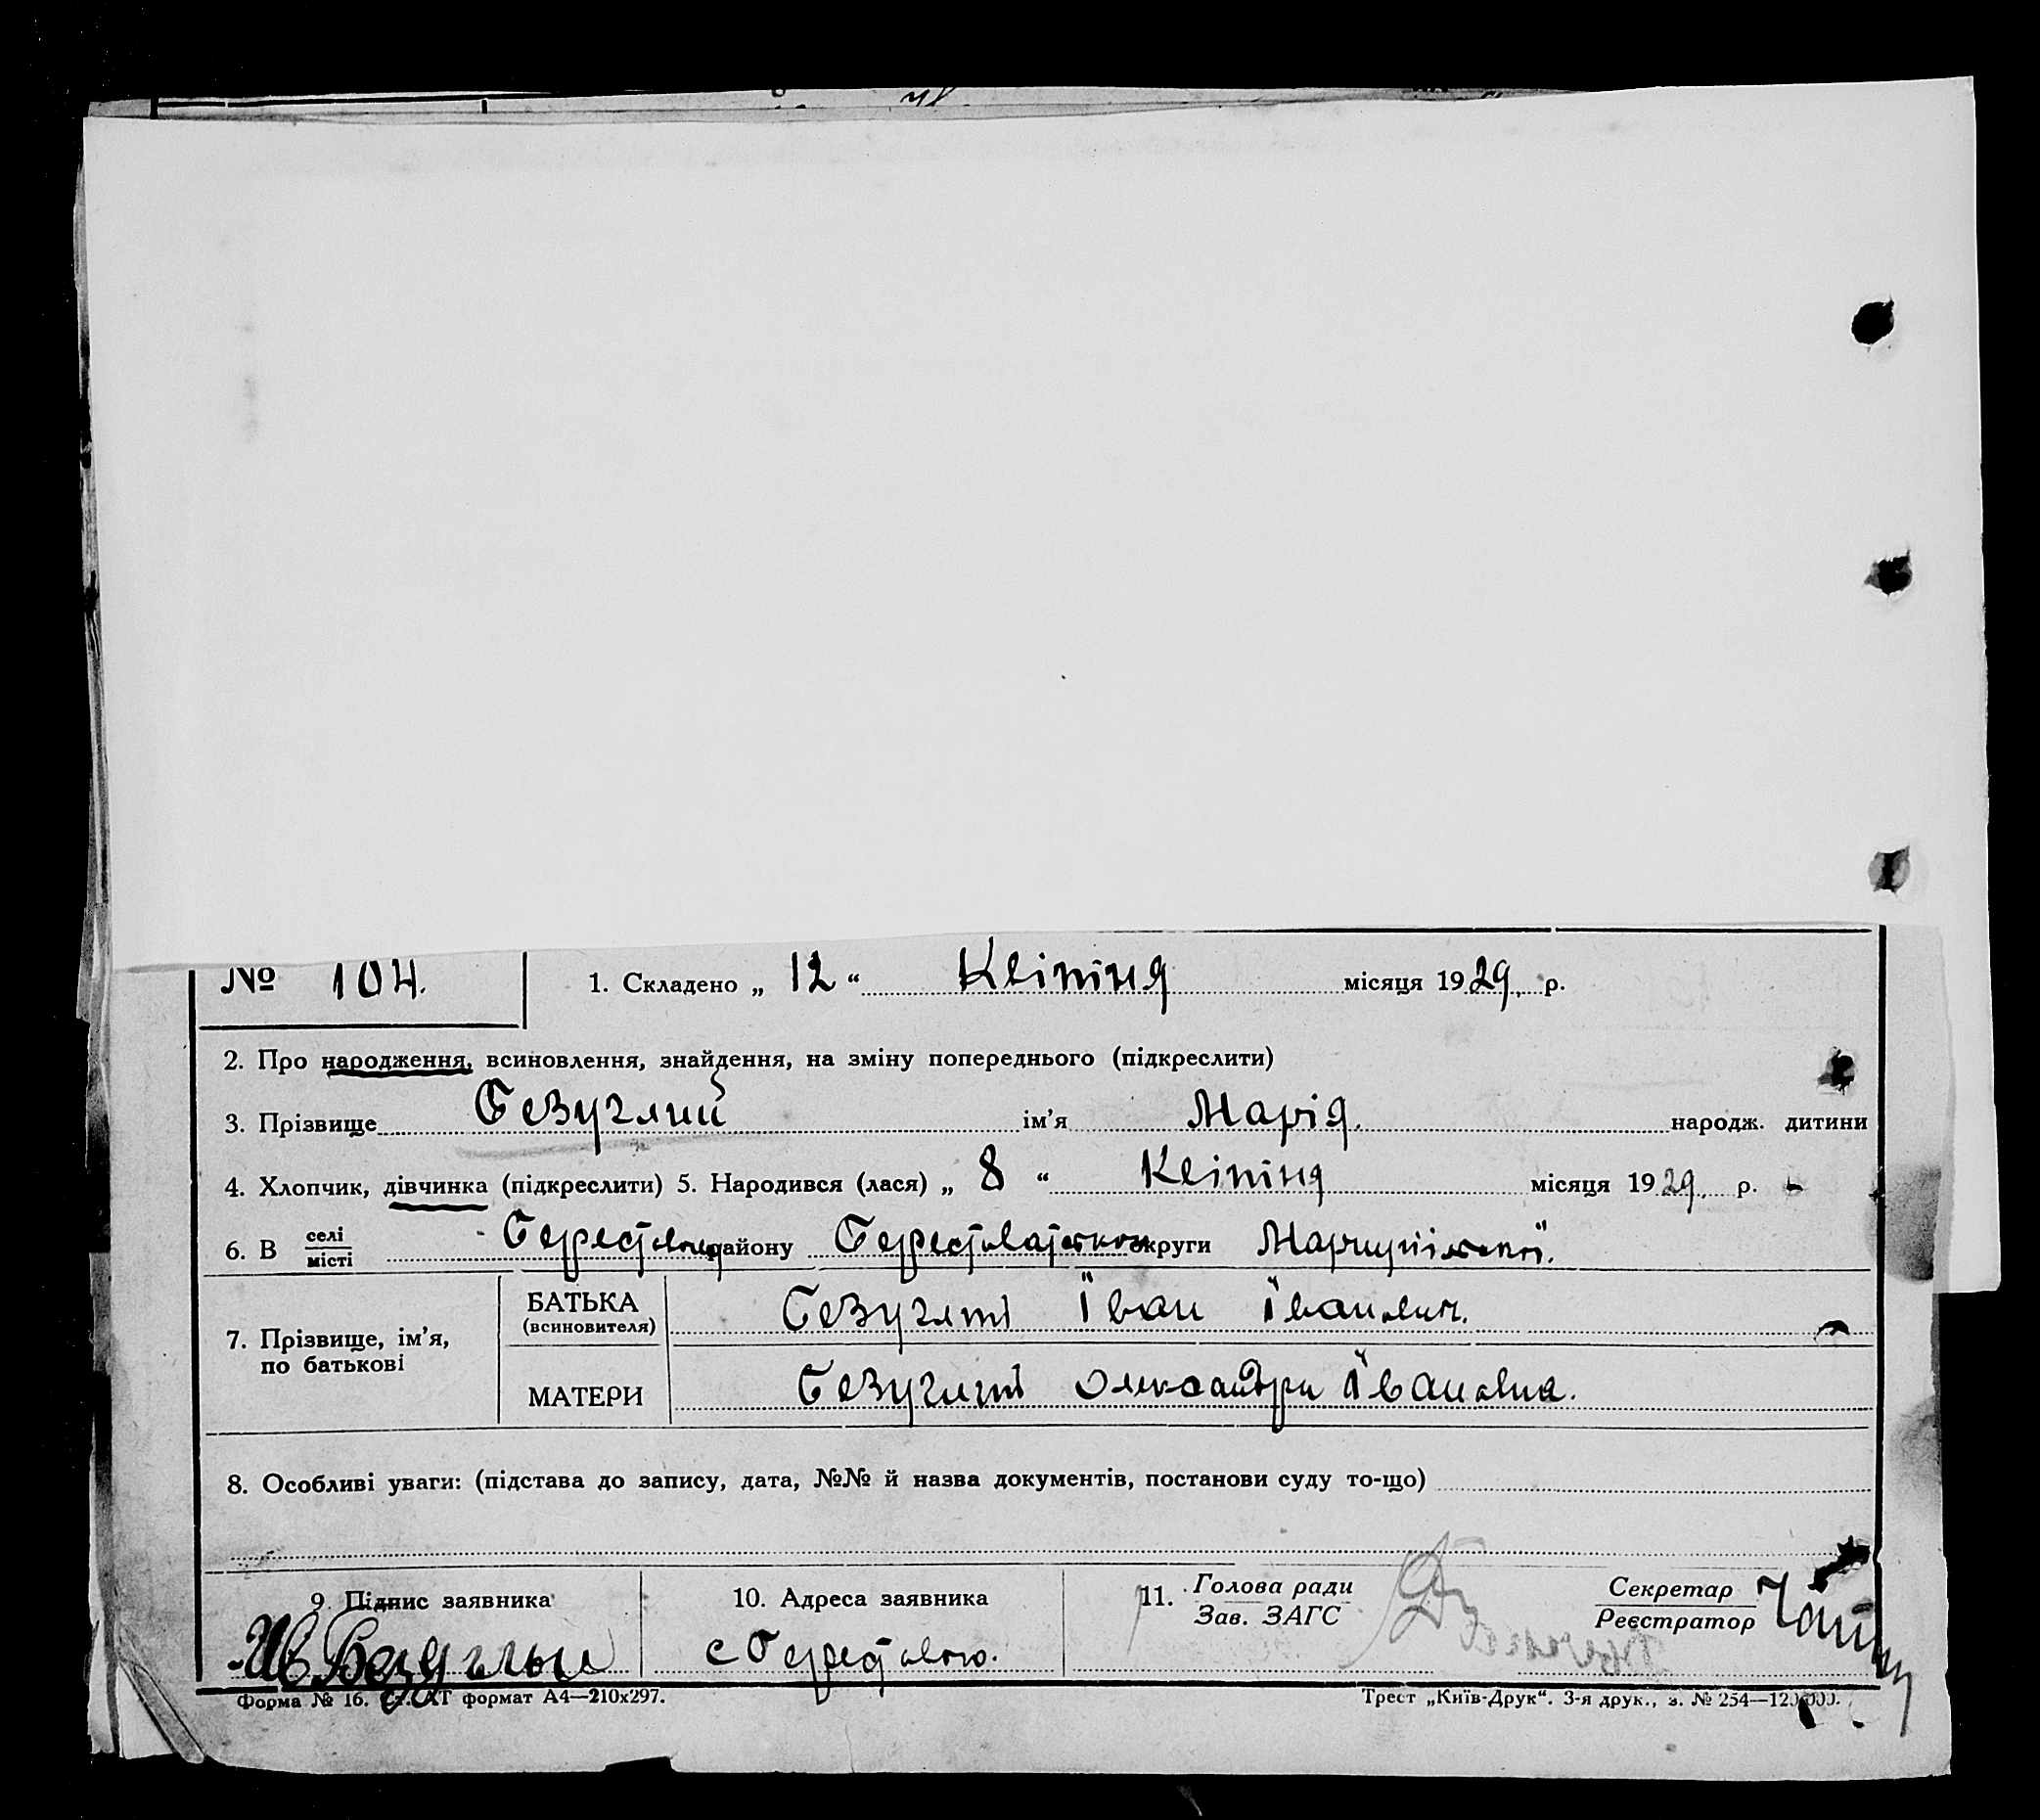 № 104. 1. Складено „ 12 “ Квітня місяця 1929 р.
2. Про народження, всиновлення, знайдення, на зміну попереднього (підкреслити)
3. Прізвище Безуглий ім’я Марія. народж. дитини
4. Хлопчик, дівчинка (підкреслити) 5. Народився (лася) „ 8 “ Квітня місяця 1929 р.
6. В селі місті району округи Маріупільської.
7. Прізвище, ім’я, по батькові
БАТЬКА (всиновителя) Іван Іванович.
МАТЕРИ Івановна.
8. Особливі уваги: (підстава до запису, дата, №№ й назва документів, постанови суду то-що)
9. Підпис заявника 10. Адреса заявника 11. Голова ради Зав. ЗАГС Секретар Реєстратор
с Берестовою.
Форма № 16. формат А4—210х297. Трест „Київ-Друк“. 3-я друк., з. № 254—120.000.